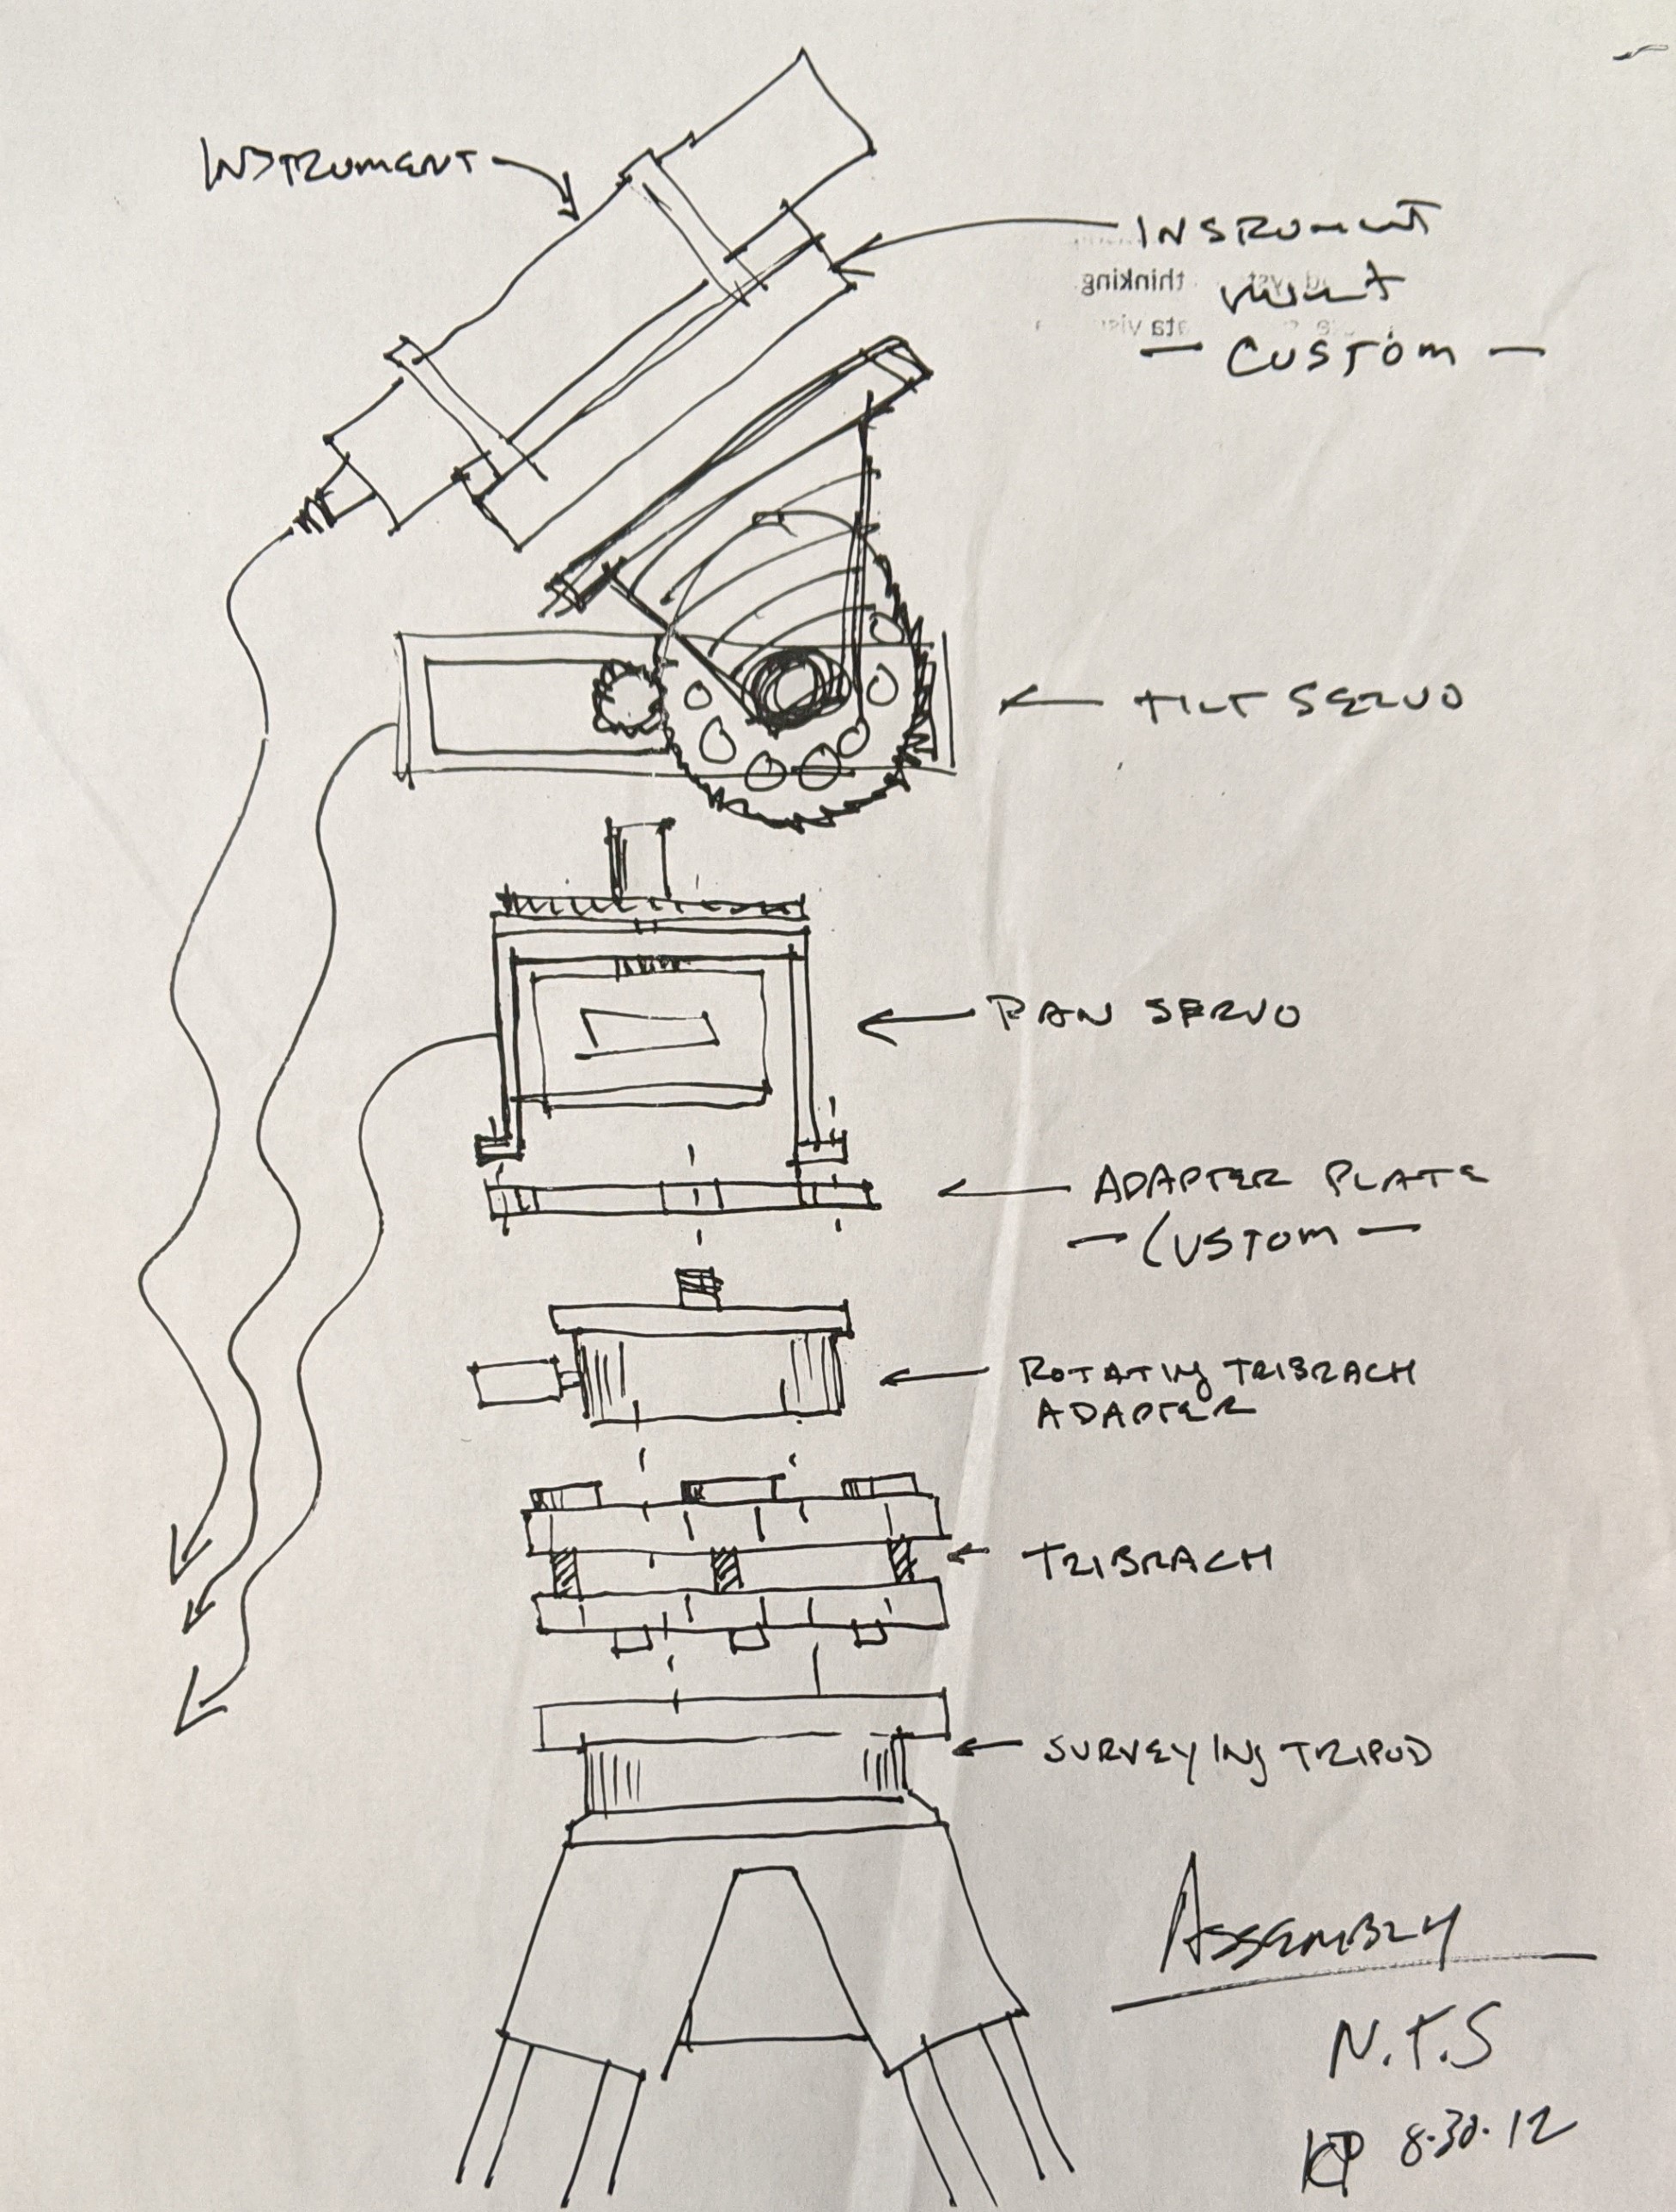 INSTRUMENT
INSRUMENT
MOUNT
- CUSTOM -
TILT SERVO
PAN SERVO
ADAPTER PLATE
- CUSTOM -
ROTATING TRIBRACH
ADAPTER
TRIBRACH
SURVEYING TRIPOD
ASSEMBLY
N.T.S
KP 8.30.12